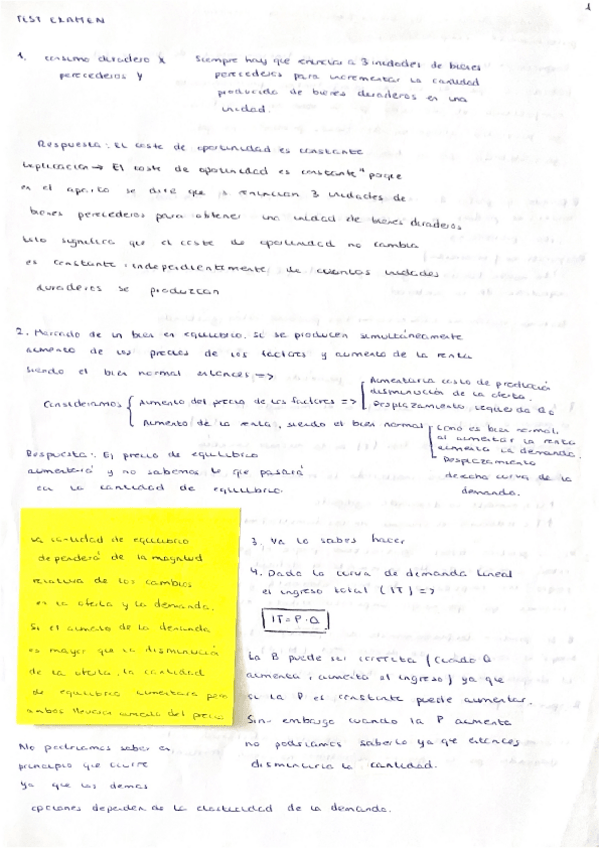 1
TEST EXAMEN
1. consumo duradero X
perecederos y
Siempre hay que renunciar a 3 unidades de bienes
perecederos para incrementar la cantidad
producida de bienes duraderos en una
unidad.
Respuesta: EL coste de oportunidad es constante
Explicación → El coste de oportunidad es constante" porque
en el aparto se dice que s renuncian 3 unidades de
bienes perecederos para obtener una unidad de bienes duraderos
Esto significa que el coste de oportunidad no cambia
es constante, independientemente de cuantas unidades
duraderos se produzcan
2. Mercado de un bien en equilibrio. Si se producen simultáneamente
aumento de los precios de los factores y aumento de la renta
siendo el bien normal entonces =>
Consideramos
Aumento del precio de los factores =>
Aumentaria costo de producción
disminución de la oferta.
Desplazamiento izquierda
Aumento de la renta, siendo el bien normal
como es bien normal,
al aumentar la renta
aumenta la demanda.
Desplazamiento
derecha curva de la
demanda.
Respuesta: El precio de equilibrio
aumentará y no sabemos lo que pasará
en la cantidad de equilibrio
La cantidad de equilibrio
dependerá de la magnitud
relativa de los cambios
en la oferta y la demanda.
Si el aumento de la demanda
es mayor que la disminució
de la oferta, la cantidad
de equilibrio aumentara pero
ambos llevan aumento del precio
No podriamos saber en
principio que ocurre
ya que las demas
opciones dependen de la elasticidad de la demanda.
3. Ya lo sabes hacer
4. Dada la curva de demanda lineal
el ingreso total (IT) =>
IT = P·Q
La B puede ser correcta (cuando Q
aumenta, aumenta el ingreso) ya que
si la P es constante puede aumentar.
Sin embargo cuando la P aumenta
no podriamos saberlo ya qe entonces
disminuiria la cantidad.